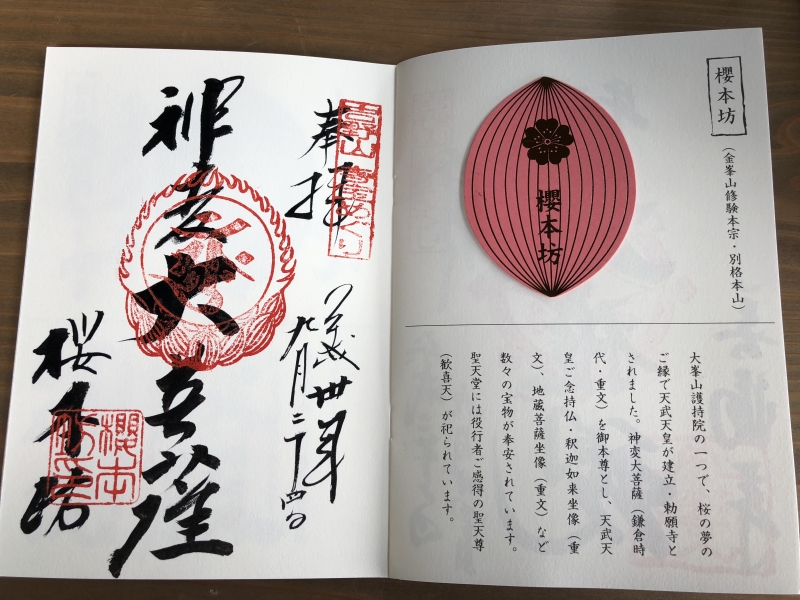 櫻本坊
(金峯山修験本宗・別格本山)
櫻本坊
大峯山護持院の一つで、桜の夢の
ご縁で天武天皇が建立・勅願寺と
されました。神変大菩薩(鎌倉時
代・重文)を御本尊とし、天武天
皇ご念持仏・釈迦如来坐像(重
文)、地蔵菩薩坐像(重文)など
数々の宝物が奉安されています。
聖天堂には役行者ご感得の聖天尊
(歓喜天)が祀られています。
奉拝
平成卅年
九月二十四日
神变大菩薩
桜本坊